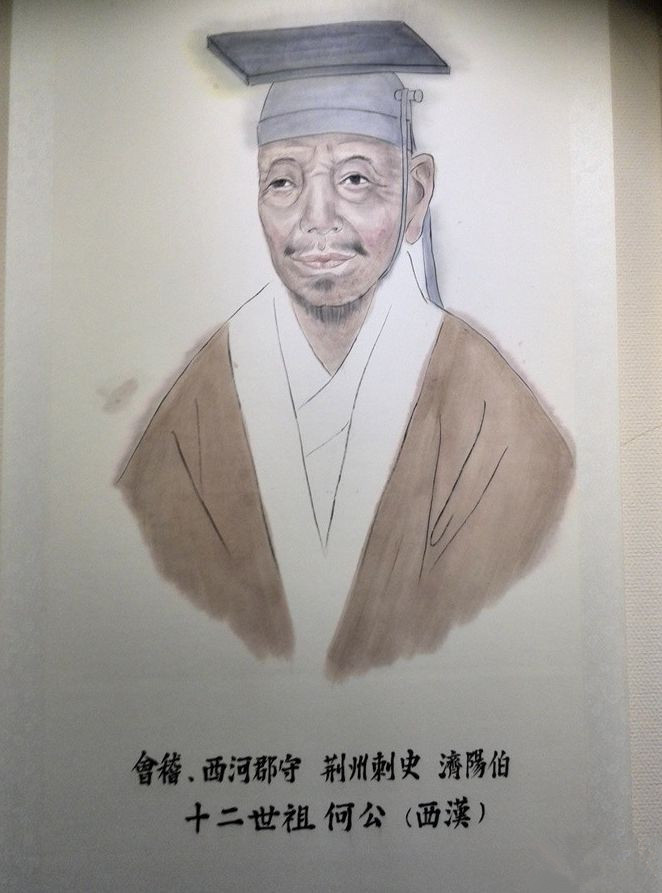 會稽、西河郡守 荆州刺史 濟陽伯
十二世祖何公（西漢）